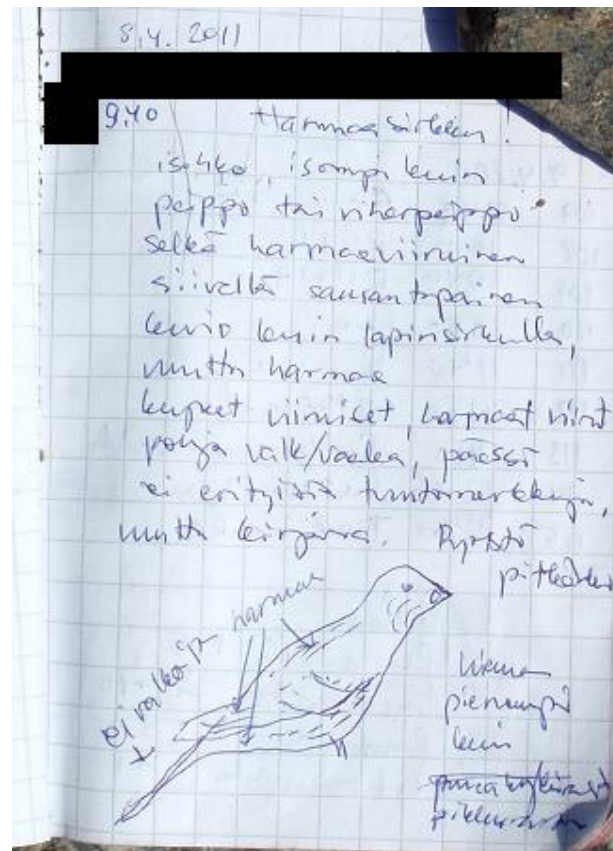 8.4. 2011
9.40 Harmaasirkku!
isohko, isompi kuin
peippo tai viherpeippo
selkä harmaaviiruinen
siivellä saman tapainen
kuvio kuin lapinsirkulla,
mutta harmaa
kupeet viiruiset, harmaat viirut
pohja valk/vaalea, päässä
ei erityisiä tuntomerkkejä,
mutta kirjava. Pyrstö
pitkähkö
ei valkoista
harmaa
hieman
pienempi
kuin